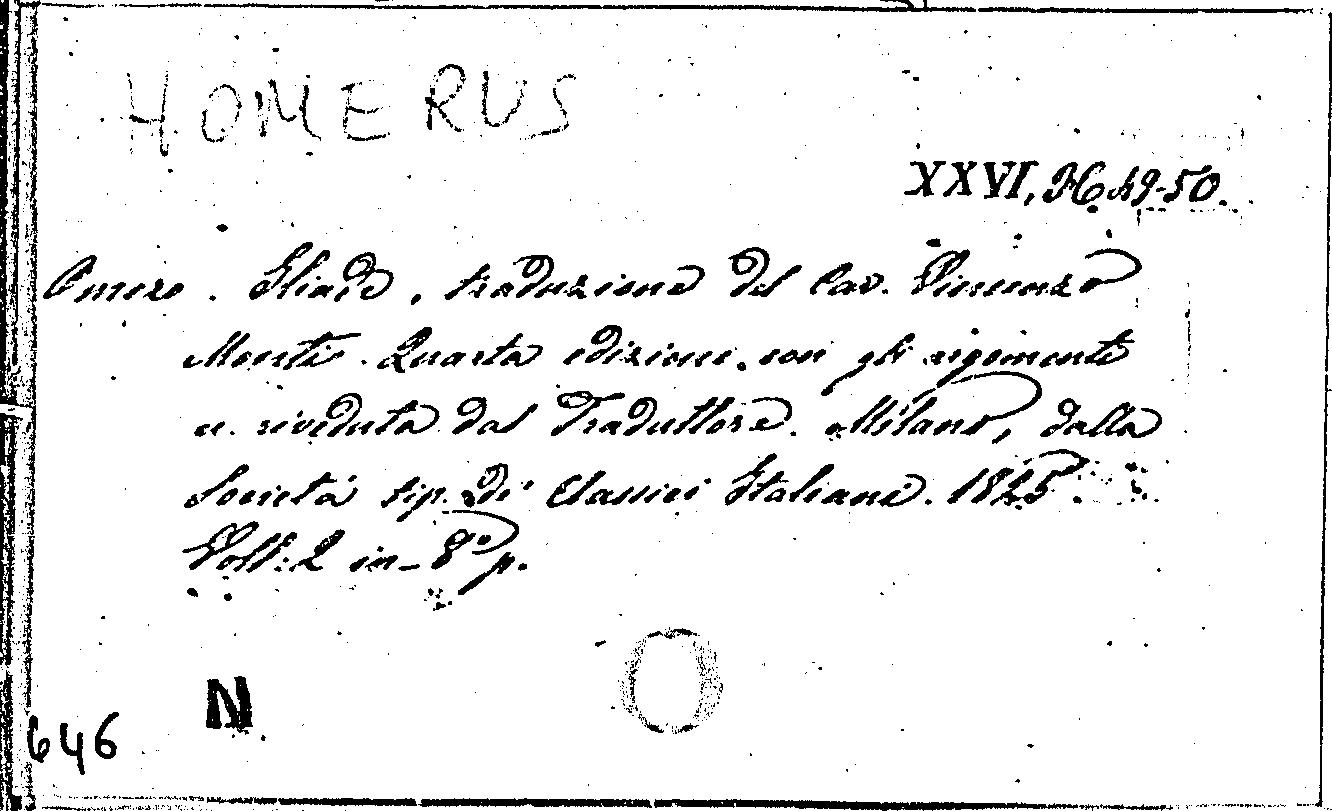 HOMERUS
XXVI, H6 49-50.
Omero. Iliade, traduzione del Cav. Vincenzo
Monti. Quarta edizione, con gli argomenti
riveduta dal Traduttore. Milano, dalla
Società tip. de' Classici Italiani. 1825.
Voll: 2 in-8° p.
N
646